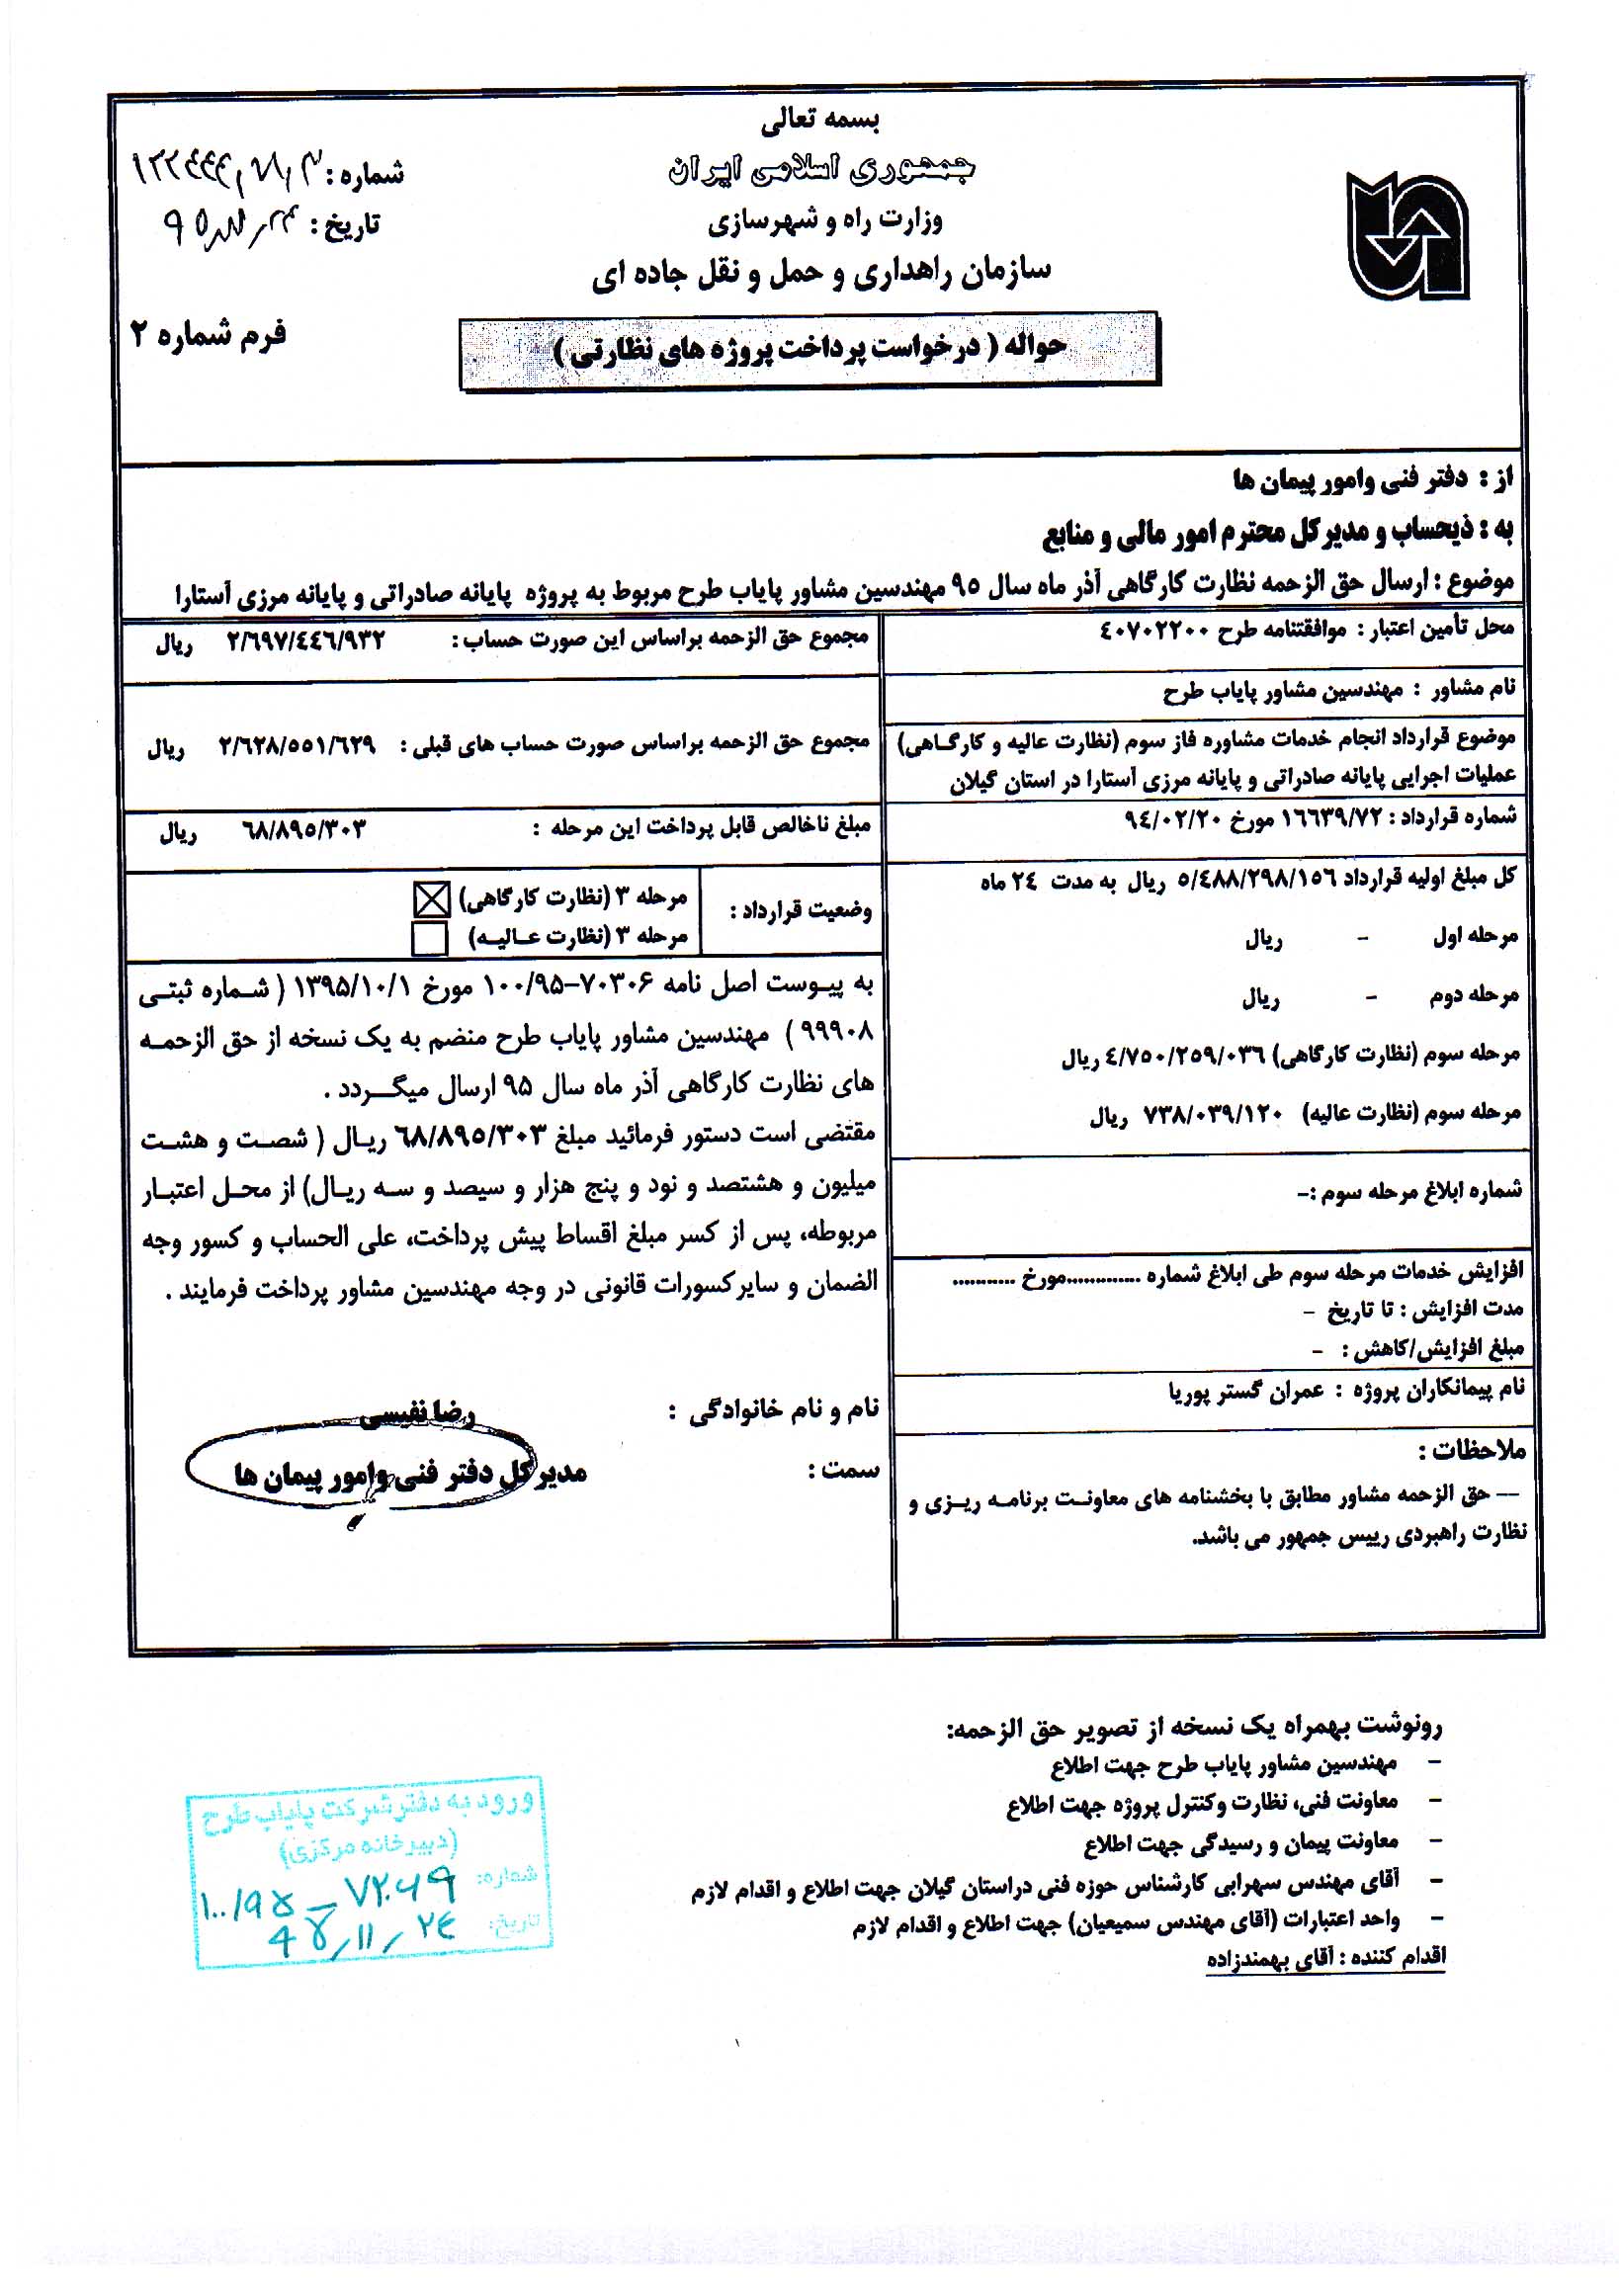 بسمه تعالی
جمهوری اسلامی ایران
وزارت راه و شهرسازی
سازمان راهداری و حمل و نقل جاده ای
شماره :
تاریخ :
فرم شماره ۲
حواله ( درخواست پرداخت پروژه های نظارتی )
از : دفتر فنی وامور پیمان ها
به : ذیحساب و مدیر کل محترم امور مالی و منابع
موضوع : ارسال حق الزحمه نظارت کارگاهی آذر ماه سال ۹۵ مهندسین مشاور پایاب طرح مربوط به پروژه پایانه صادراتی و پایانه مرزی آستارا
محل تأمین اعتبار : موافقتنامه طرح ۴۰۷۰۲۲۰۰
نام مشاور : مهندسین مشاور پایاب طرح
موضوع قرارداد انجام خدمات مشاوره فاز سوم (نظارت عالیه و کارگاهی)
عملیات اجرایی پایانه صادراتی و پایانه مرزی آستارا در استان گیلان
شماره قرارداد : ۱۶۶۳۹/۷۲ مورخ ۹۴/۰۲/۲۰
کل مبلغ اولیه قرارداد ۵/۴۸۸/۲۹۸/۱۵۶ ریال به مدت ۲۴ ماه
مرحله اول - ریال
مرحله دوم - ریال
مرحله سوم (نظارت کارگاهی) ۴/۷۵۰/۲۵۹/۰۳۶ ریال
مرحله سوم (نظارت عالیه) ۷۳۸/۰۳۹/۱۲۰ ریال
شماره ابلاغ مرحله سوم :-
افزایش خدمات مرحله سوم طی ابلاغ شماره .............مورخ ...........
مدت افزایش : تا تاریخ -
مبلغ افزایش/کاهش : -
نام پیمانکاران پروژه : عمران گستر پوریا
ملاحظات :
— حق الزحمه مشاور مطابق با بخشنامه های معاونت برنامه ریزی و
نظارت راهبردی رییس جمهور می باشد.
مجموع حق الزحمه براساس این صورت حساب : ۲/۶۹۷/۴۴۶/۹۳۲ ریال
مجموع حق الزحمه براساس صورت حساب های قبلی : ۲/۶۲۸/۵۵۱/۶۲۹ ریال
مبلغ ناخالص قابل پرداخت این مرحله : ۶۸/۸۹۵/۳۰۳ ریال
وضعیت قرارداد :
مرحله ۳ (نظارت کارگاهی)
مرحله ۳ (نظارت عالیه)
به پیوست اصل نامه ۷۰۳۰۶-۱۰۰/۹۵ مورخ ۱۳۹۵/۱۰/۱ ( شماره ثبتی
۹۹۹۰۸ ) مهندسین مشاور پایاب طرح منضم به یک نسخه از حق الزحمه
های نظارت کارگاهی آذر ماه سال ۹۵ ارسال میگردد .
مقتضی است دستور فرمائید مبلغ ۶۸/۸۹۵/۳۰۳ ریال ( شصت و هشت
میلیون و هشتصد و نود و پنج هزار و سیصد و سه ریال) از محل اعتبار
مربوطه، پس از کسر مبلغ اقساط پیش پرداخت، علی الحساب و کسور وجه
الضمان و سایرکسورات قانونی در وجه مهندسین مشاور پرداخت فرمایند .
نام و نام خانوادگی : رضا نفیسی
سمت : مدیر کل دفتر فنی وامور پیمان ها
رونوشت بهمراه یک نسخه از تصویر حق الزحمه:
- مهندسین مشاور پایاب طرح جهت اطلاع
- معاونت فنی، نظارت وکنترل پروژه جهت اطلاع
- معاونت پیمان و رسیدگی جهت اطلاع
- آقای مهندس سهرابی کارشناس حوزه فنی دراستان گیلان جهت اطلاع و اقدام لازم
- واحد اعتبارات (آقای مهندس سمیعیان) جهت اطلاع و اقدام لازم
اقدام کننده : آقای بهمندزاده
ورود به دفتر شرکت پایاب طرح
(دبیرخانه مرکزی)
شماره: ۱۰۰/۹۵ - ۷۲۰۶۹
تاریخ: ۹۵/۱۱/۲۴